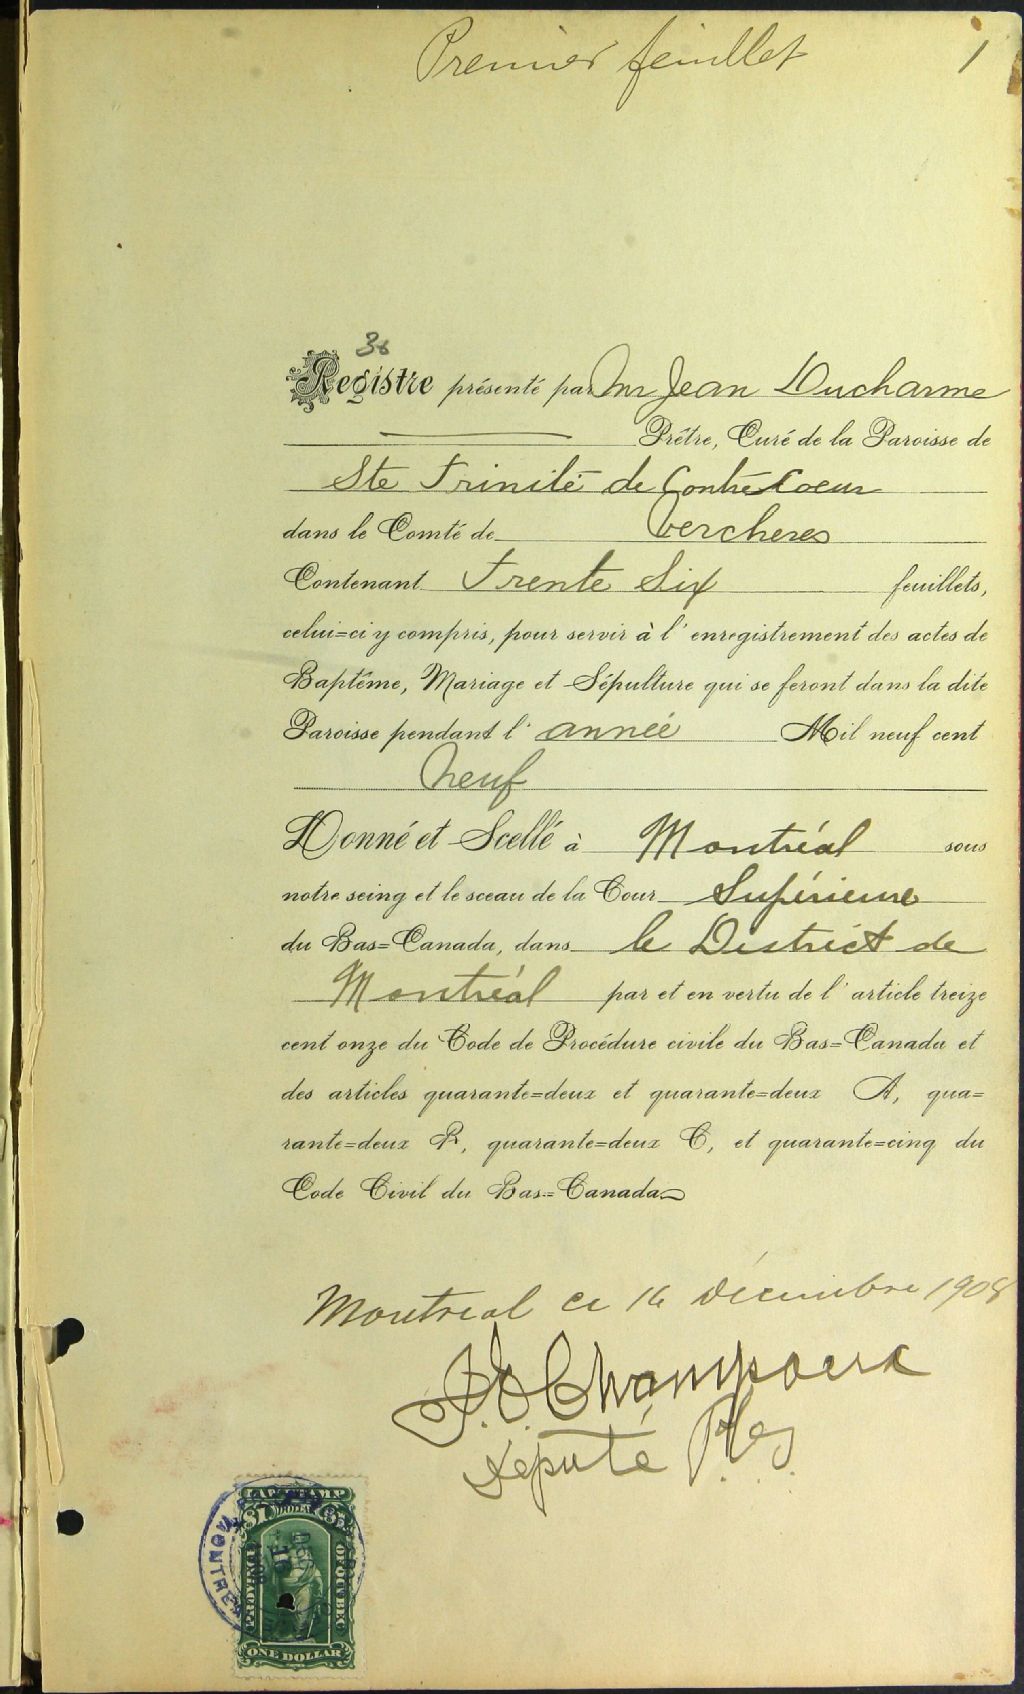 Premier feuillet
1
36
Registre présenté par Mr Jean Ducharme
Prêtre, Curé de la Paroisse de
Ste Trinité de Contrecoeur
dans le Comté de Vercheres
Contenant Trente Six feuillets,
celui=ci y compris, pour servir à l'enregistrement des actes de
Baptême, Mariage et Sépulture qui se feront dans la dite
Paroisse pendant l'année Mil neuf cent
Neuf
Donné et Scellé à Montréal sous
notre seing et le sceau de la Cour Supérieure
du Bas=Canada, dans le District de
Montréal par et en vertu de l'article treize
cent onze du Code de Procédure civile du Bas=Canada et
des articles quarante=deux et quarante=deux A, qua=
rante=deux B, quarante=deux C, et quarante=cinq du
Code Civil du Bas=Canada
Montreal ce 16 Décembre 1908
Champoux
Député P.
LAW STAMP
$1 DOLLAR $1
PROVINCE OF QUEBEC
DEC 16
MONTREAL
ONE DOLLAR